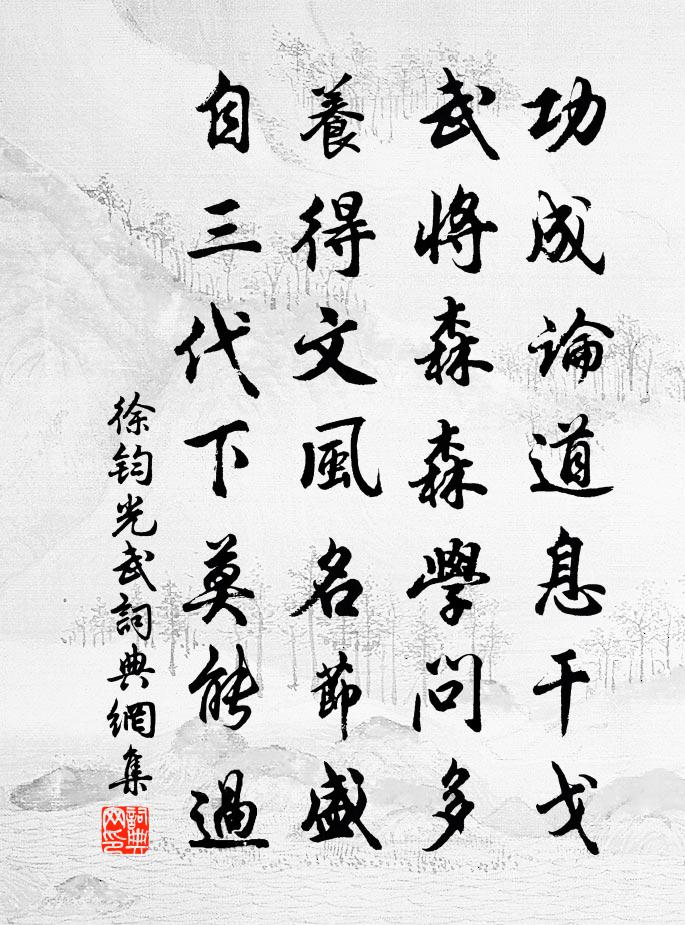 功成論道息干戈
武將森森學問多
養得文風名節盛
自三代下莫能過
徐鈞光武詞典網集
詞典网印